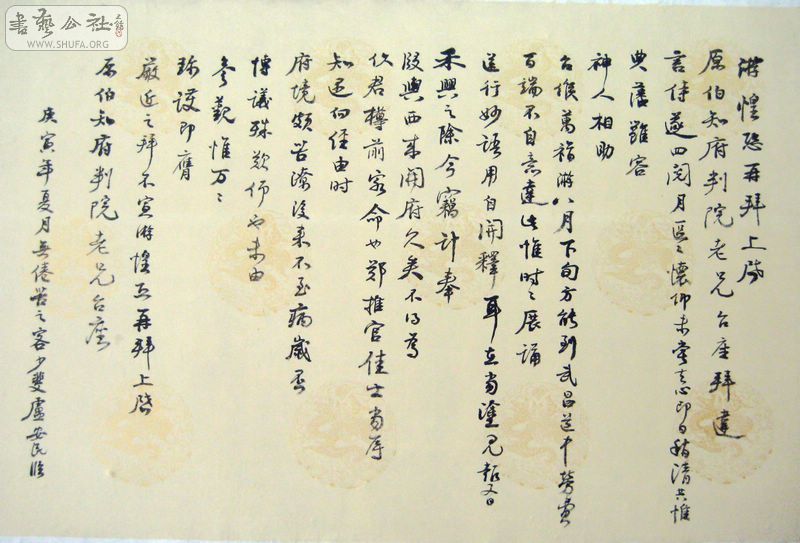 游惶恐再拜上啓
原伯知府判院老兄台座拜違
言侍遂四閱月區區懷仰未嘗去心即日秋清共惟
典藩雖容
神人相助
台候萬福游八月下旬方能到武昌道中勞費
百端不自意達此惟時時展誦
送行妙語用自開釋耳在當塗見報有
禾興之除今竊計奉
版輿西來開府久矣不得為
使君樽前客命也鄭推官佳士當辱
知遇向經由時
府境頗苦潦後來不至病歲否
傅議殊歎仰也未由
參覲惟萬萬
珍護即膺
嚴近之拜不宣游惶恐再拜上啓
原伯知府判院老兄台座
庚寅年夏月無倦苦之客少斐盧安民臨
書藝公社
WWW.SHUFA.ORG